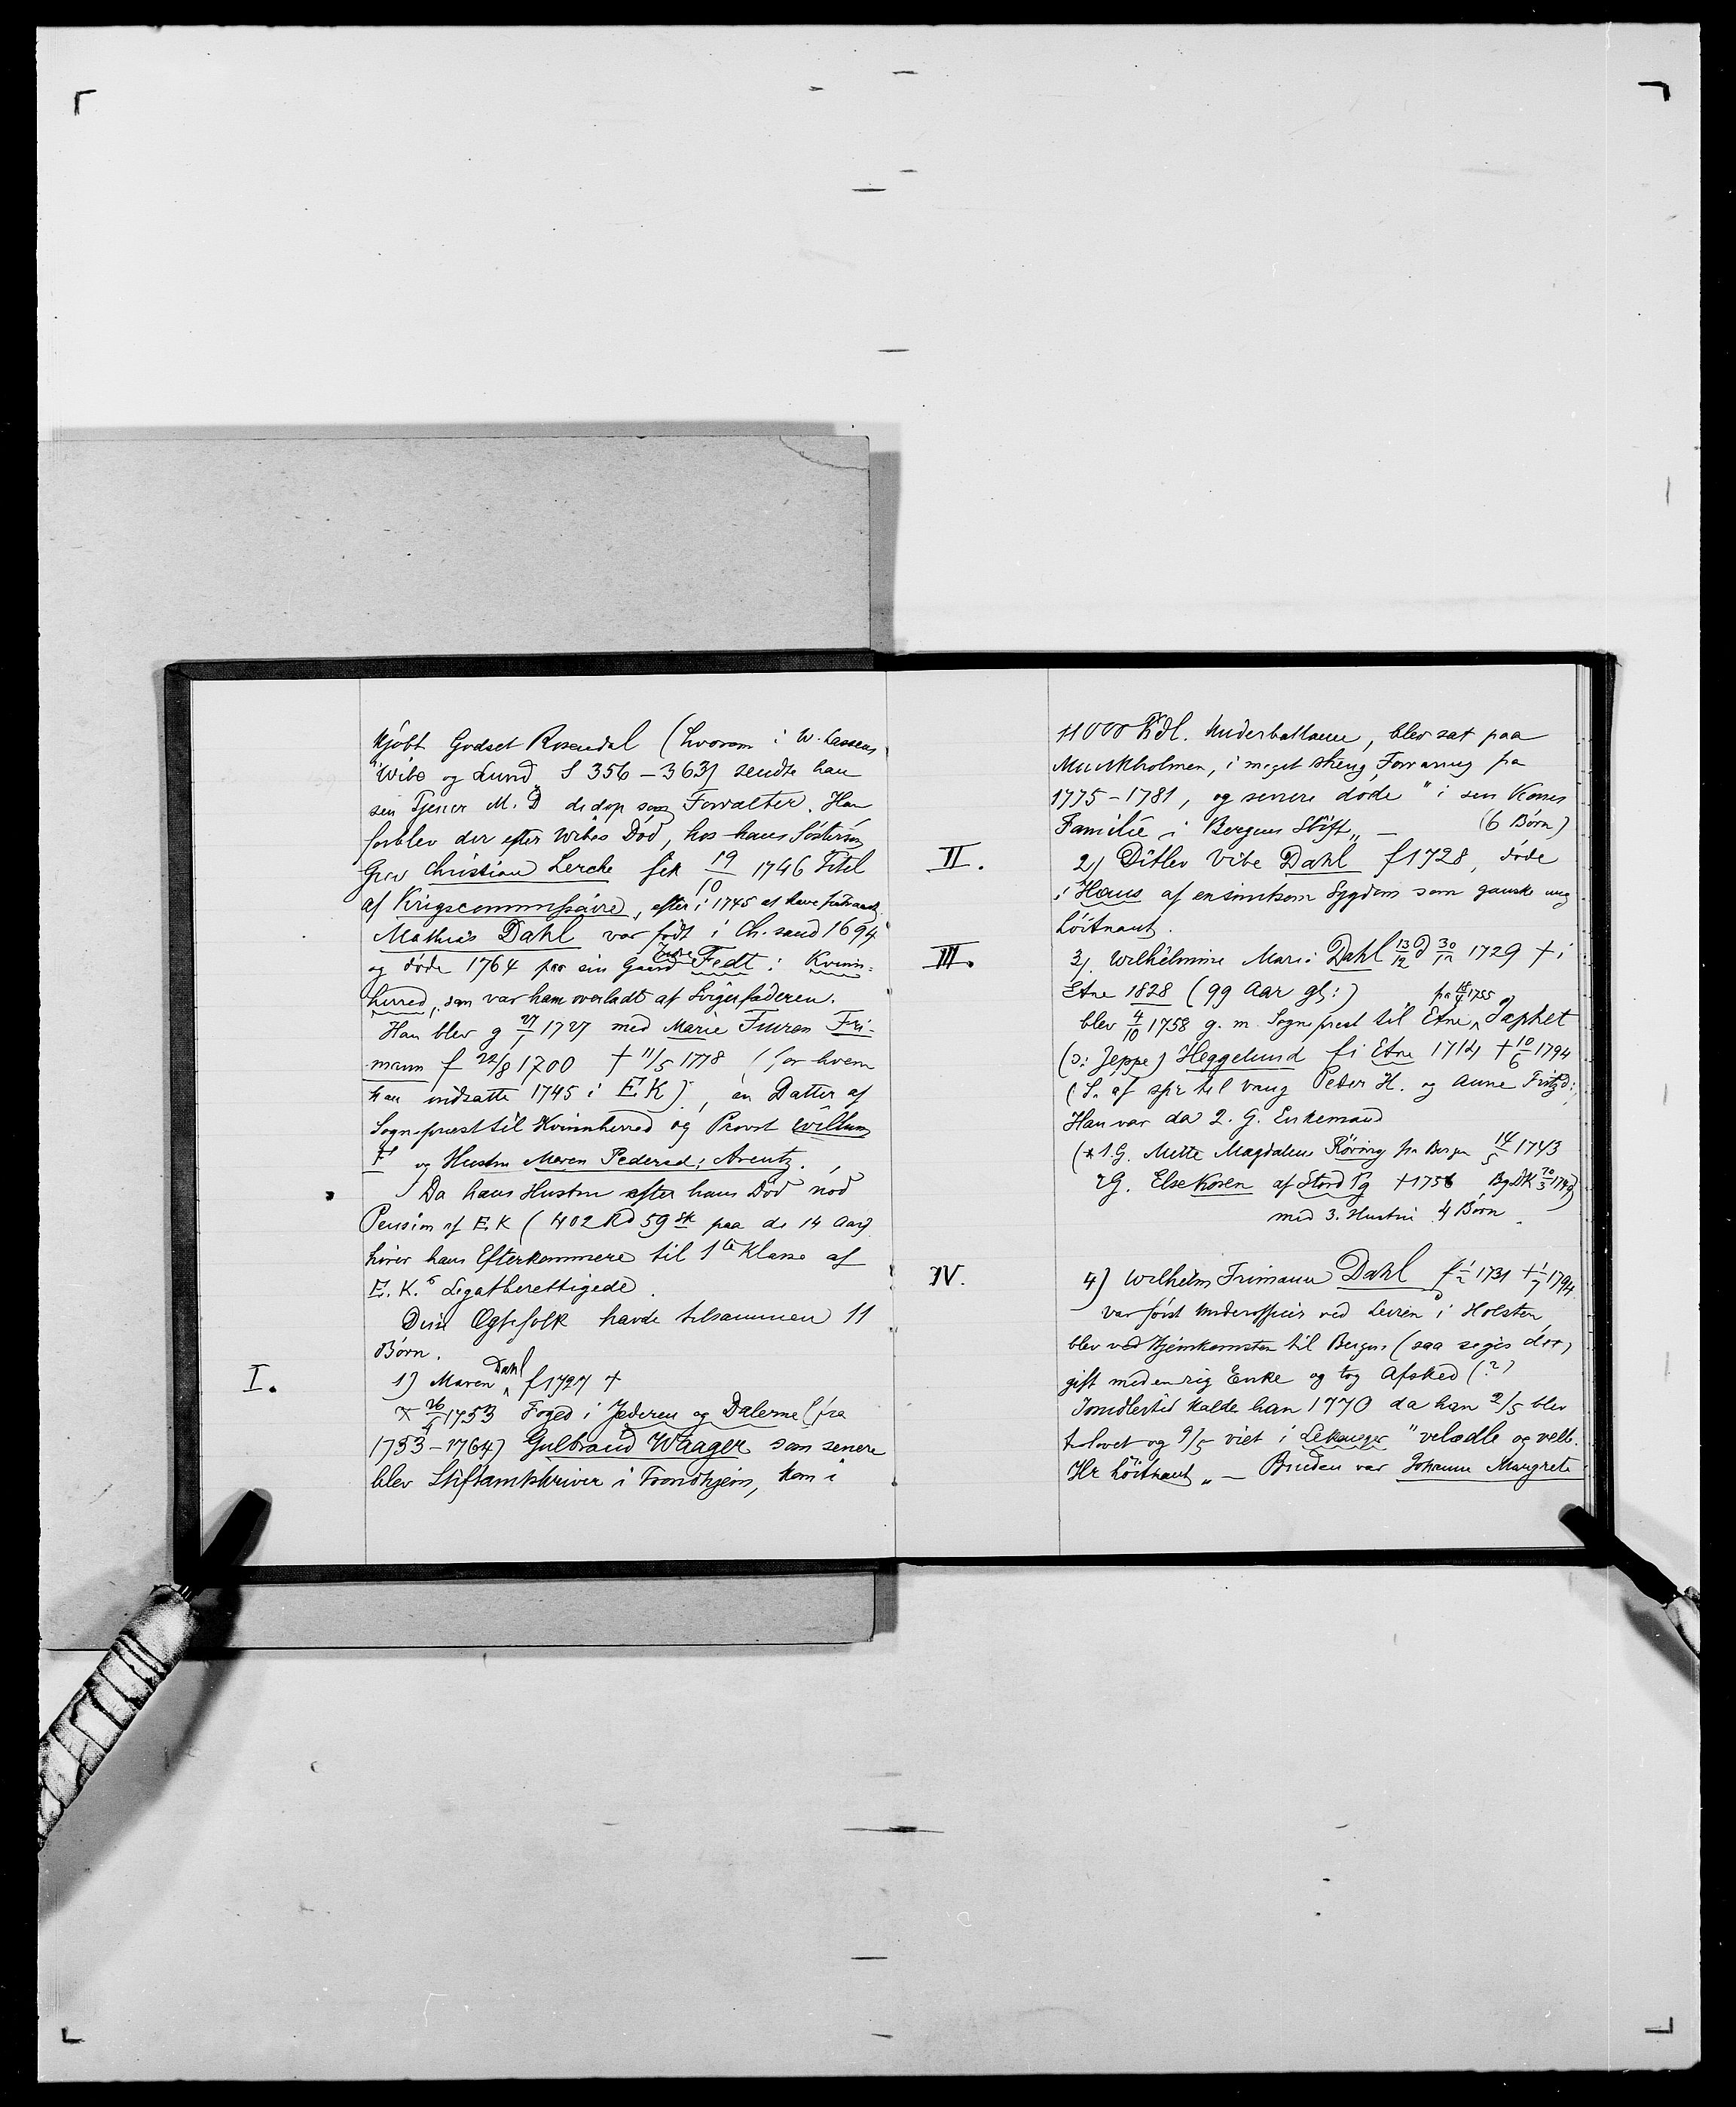 kjöbt Godset Rosendal (hvorom i W. Lassens
"Wibe og Lund" S 356-363) sendte han
sin Tjener M. D derop som Forvalter. Han
forblev der efter Wibes Död, hos hans Söstersön
Grev Christian Lerche fik 19/10 1746 Titel
af Krigscommissaire, efter i 1745 at have
Mathias Dahl var födt i Ch.sand 1694
og döde 1764 paa sin Gaard Fedt i Kvinn-
herred, som var ham overladt af Svigerfaderen.
Han blev g 27/1 1727 med Marie Fuiren Fri-
mann f 22/8 1700 † 11/5 1778 (for hvem
han indsatte 1745 i E K), en Datter af
Sogneprest til Kvinnherred og Provst Willum
F og Hustru Maren Pedersd: Arentz.
Da hans Hustru efter hans Död nöd
Pension af E. K (402 Rd 59 sk paa de 14 Aar)
hörer hans Efterkommere til 1ste Klasse af
E. K.s Legatberettigede.
Disse Ægtefolk havde tilsammen 11
Börn.
I.
1) Maren Dahl f 1727 †
× 26/4 1753 Foged i Jæderen og Dalerne (fra
1753-1764) Gulbrand Waager som senere
blev Stiftamtskriver i Trondhjem, kom i
11000 Rdl. Underballance, blev sat paa
Munkholmen, i meget streng Forvaring fra
1775-1781, og senere döde "i sin Kones
Familie i Bergens Stift" — (6 Börn)
II.
2) Ditlev Vibe Dahl f 1728, döde
i Haus af en smitsom Sygdom som ganske ung
Löitnant.
III.
3) Wilhelmine Marie Dahl 13/12 d 30/12 1729 † i
Etne 1828 (99 Aar gl:)
blev 4/10 1758 g. m. Sogneprest til Etne, fra 18/4 1755, Japhet
(ɔ: Jeppe) Heggelund f i Etne 1714 † 10/6 1794
(S. af spr til Vang Peder H. og Anne Fritzd:
Han var da 2. G. Enkemand
(* 1 G. Mette Magdalene Röring fra Bergen 14/5 1743
2 G. Else Koren af Stord Pg † 1756 Bg. DK 20/3 1749)
med 3. Hustru 4 Börn.
IV.
4) Wilhelm Frimann Dahl f 1/2 1731 † 1/7 1794.
var först Underofficier ved Leiren i Holsten,
blev ved Hjemkomsten til Bergen (saa siges der)
gift med en rig Enke og tog Afsked (?)
Imidlertid kaldes han 1770 da han 2/5 blev
trolovet og 9/5 viet i Lekanger "velædle og velb.
Hr Löitnant" — Bruden var Johanne Margrete